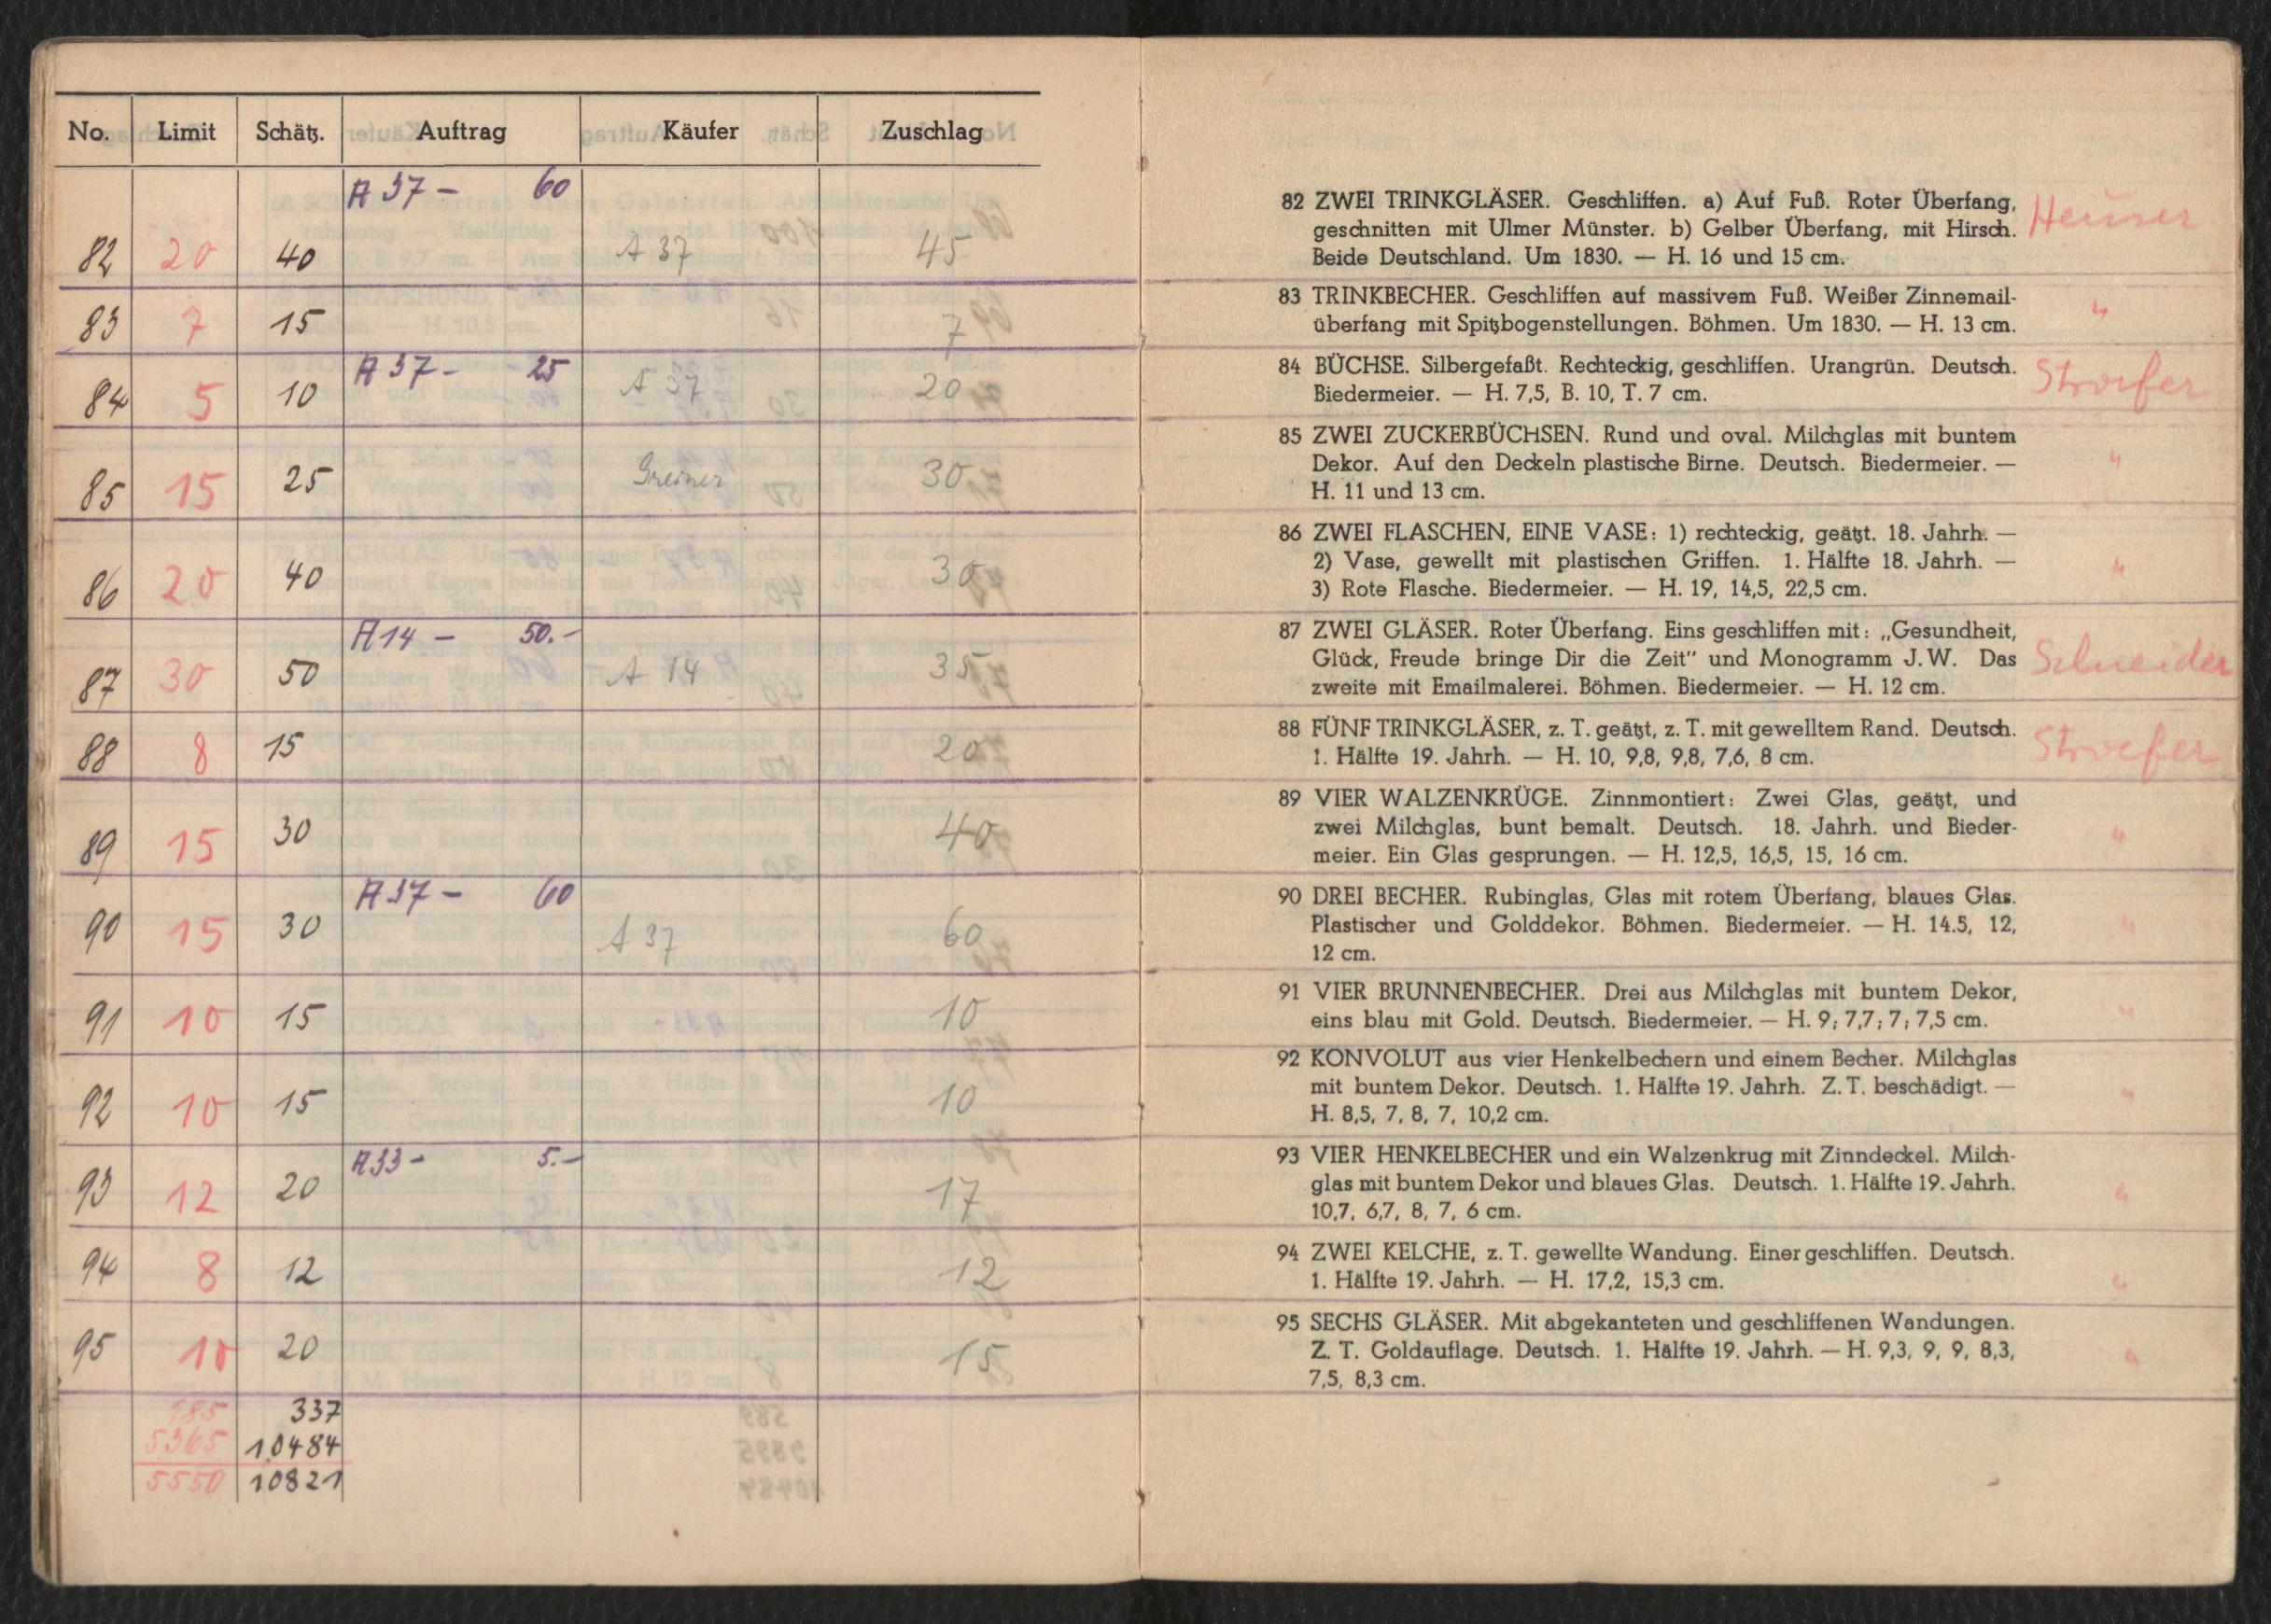 No. Limit Schätz. Auftrag Käufer Zuschlag
A 37 - 60
82 20 40 A 37 45
83 7 15 7
A 37 - 25
84 5 10 A 37 20
85 15 25 Greiner 30
86 20 40 30
A 14 - 50.-
87 30 50 A 14 35
88 8 15 20
89 15 30 40
A 37 - 60
90 15 30 A 37 60
91 10 15 10
92 10 15 10
A 33 - 5.-
93 12 20 17
94 8 12 12
95 10 20 15
185 337
5365 10484
5550 10821
82 ZWEI TRINKGLÄSER. Geschliffen. a) Auf Fuß. Roter Überfang, Heuser
geschnitten mit Ulmer Münster. b) Gelber Überfang, mit Hirsch.
Beide Deutschland. Um 1830. — H. 16 und 15 cm.
83 TRINKBECHER. Geschliffen auf massivem Fuß. Weißer Zinnemail- "
überfang mit Spitzbogenstellungen. Böhmen. Um 1830. — H. 13 cm.
84 BÜCHSE. Silbergefaßt. Rechteckig, geschliffen. Urangrün. Deutsch. Stroefer
Biedermeier. — H. 7,5, B. 10, T. 7 cm.
85 ZWEI ZUCKERBÜCHSEN. Rund und oval. Milchglas mit buntem
Dekor. Auf den Deckeln plastische Birne. Deutsch. Biedermeier. — "
H. 11 und 13 cm.
86 ZWEI FLASCHEN, EINE VASE: 1) rechteckig, geätzt. 18. Jahrh. —
2) Vase, gewellt mit plastischen Griffen. 1. Hälfte 18. Jahrh. — "
3) Rote Flasche. Biedermeier. — H. 19, 14,5, 22,5 cm.
87 ZWEI GLÄSER. Roter Überfang. Eins geschliffen mit: „Gesundheit,
Glück, Freude bringe Dir die Zeit" und Monogramm J. W. Das Schneider
zweite mit Emailmalerei. Böhmen. Biedermeier. — H. 12 cm.
88 FÜNF TRINKGLÄSER, z. T. geätzt, z. T. mit gewelltem Rand. Deutsch. Stroefer
1. Hälfte 19. Jahrh. — H. 10, 9,8, 9,8, 7,6, 8 cm.
89 VIER WALZENKRÜGE. Zinnmontiert: Zwei Glas, geätzt, und
zwei Milchglas, bunt bemalt. Deutsch. 18. Jahrh. und Bieder- "
meier. Ein Glas gesprungen. — H. 12,5, 16,5, 15, 16 cm.
90 DREI BECHER. Rubinglas, Glas mit rotem Überfang, blaues Glas.
Plastischer und Golddekor. Böhmen. Biedermeier. — H. 14.5, 12, "
12 cm.
91 VIER BRUNNENBECHER. Drei aus Milchglas mit buntem Dekor, "
eins blau mit Gold. Deutsch. Biedermeier. — H. 9; 7,7; 7; 7,5 cm.
92 KONVOLUT aus vier Henkelbechern und einem Becher. Milchglas
mit buntem Dekor. Deutsch. 1. Hälfte 19. Jahrh. Z. T. beschädigt. — "
H. 8,5, 7, 8, 7, 10,2 cm.
93 VIER HENKELBECHER und ein Walzenkrug mit Zinndeckel. Milch-
glas mit buntem Dekor und blaues Glas. Deutsch. 1. Hälfte 19. Jahrh. "
10,7, 6,7, 8, 7, 6 cm.
94 ZWEI KELCHE, z. T. gewellte Wandung. Einer geschliffen. Deutsch.
1. Hälfte 19. Jahrh. — H. 17,2, 15,3 cm. "
95 SECHS GLÄSER. Mit abgekanteten und geschliffenen Wandungen.
Z. T. Goldauflage. Deutsch. 1. Hälfte 19. Jahrh. — H. 9,3, 9, 9, 8,3, "
7,5, 8,3 cm.